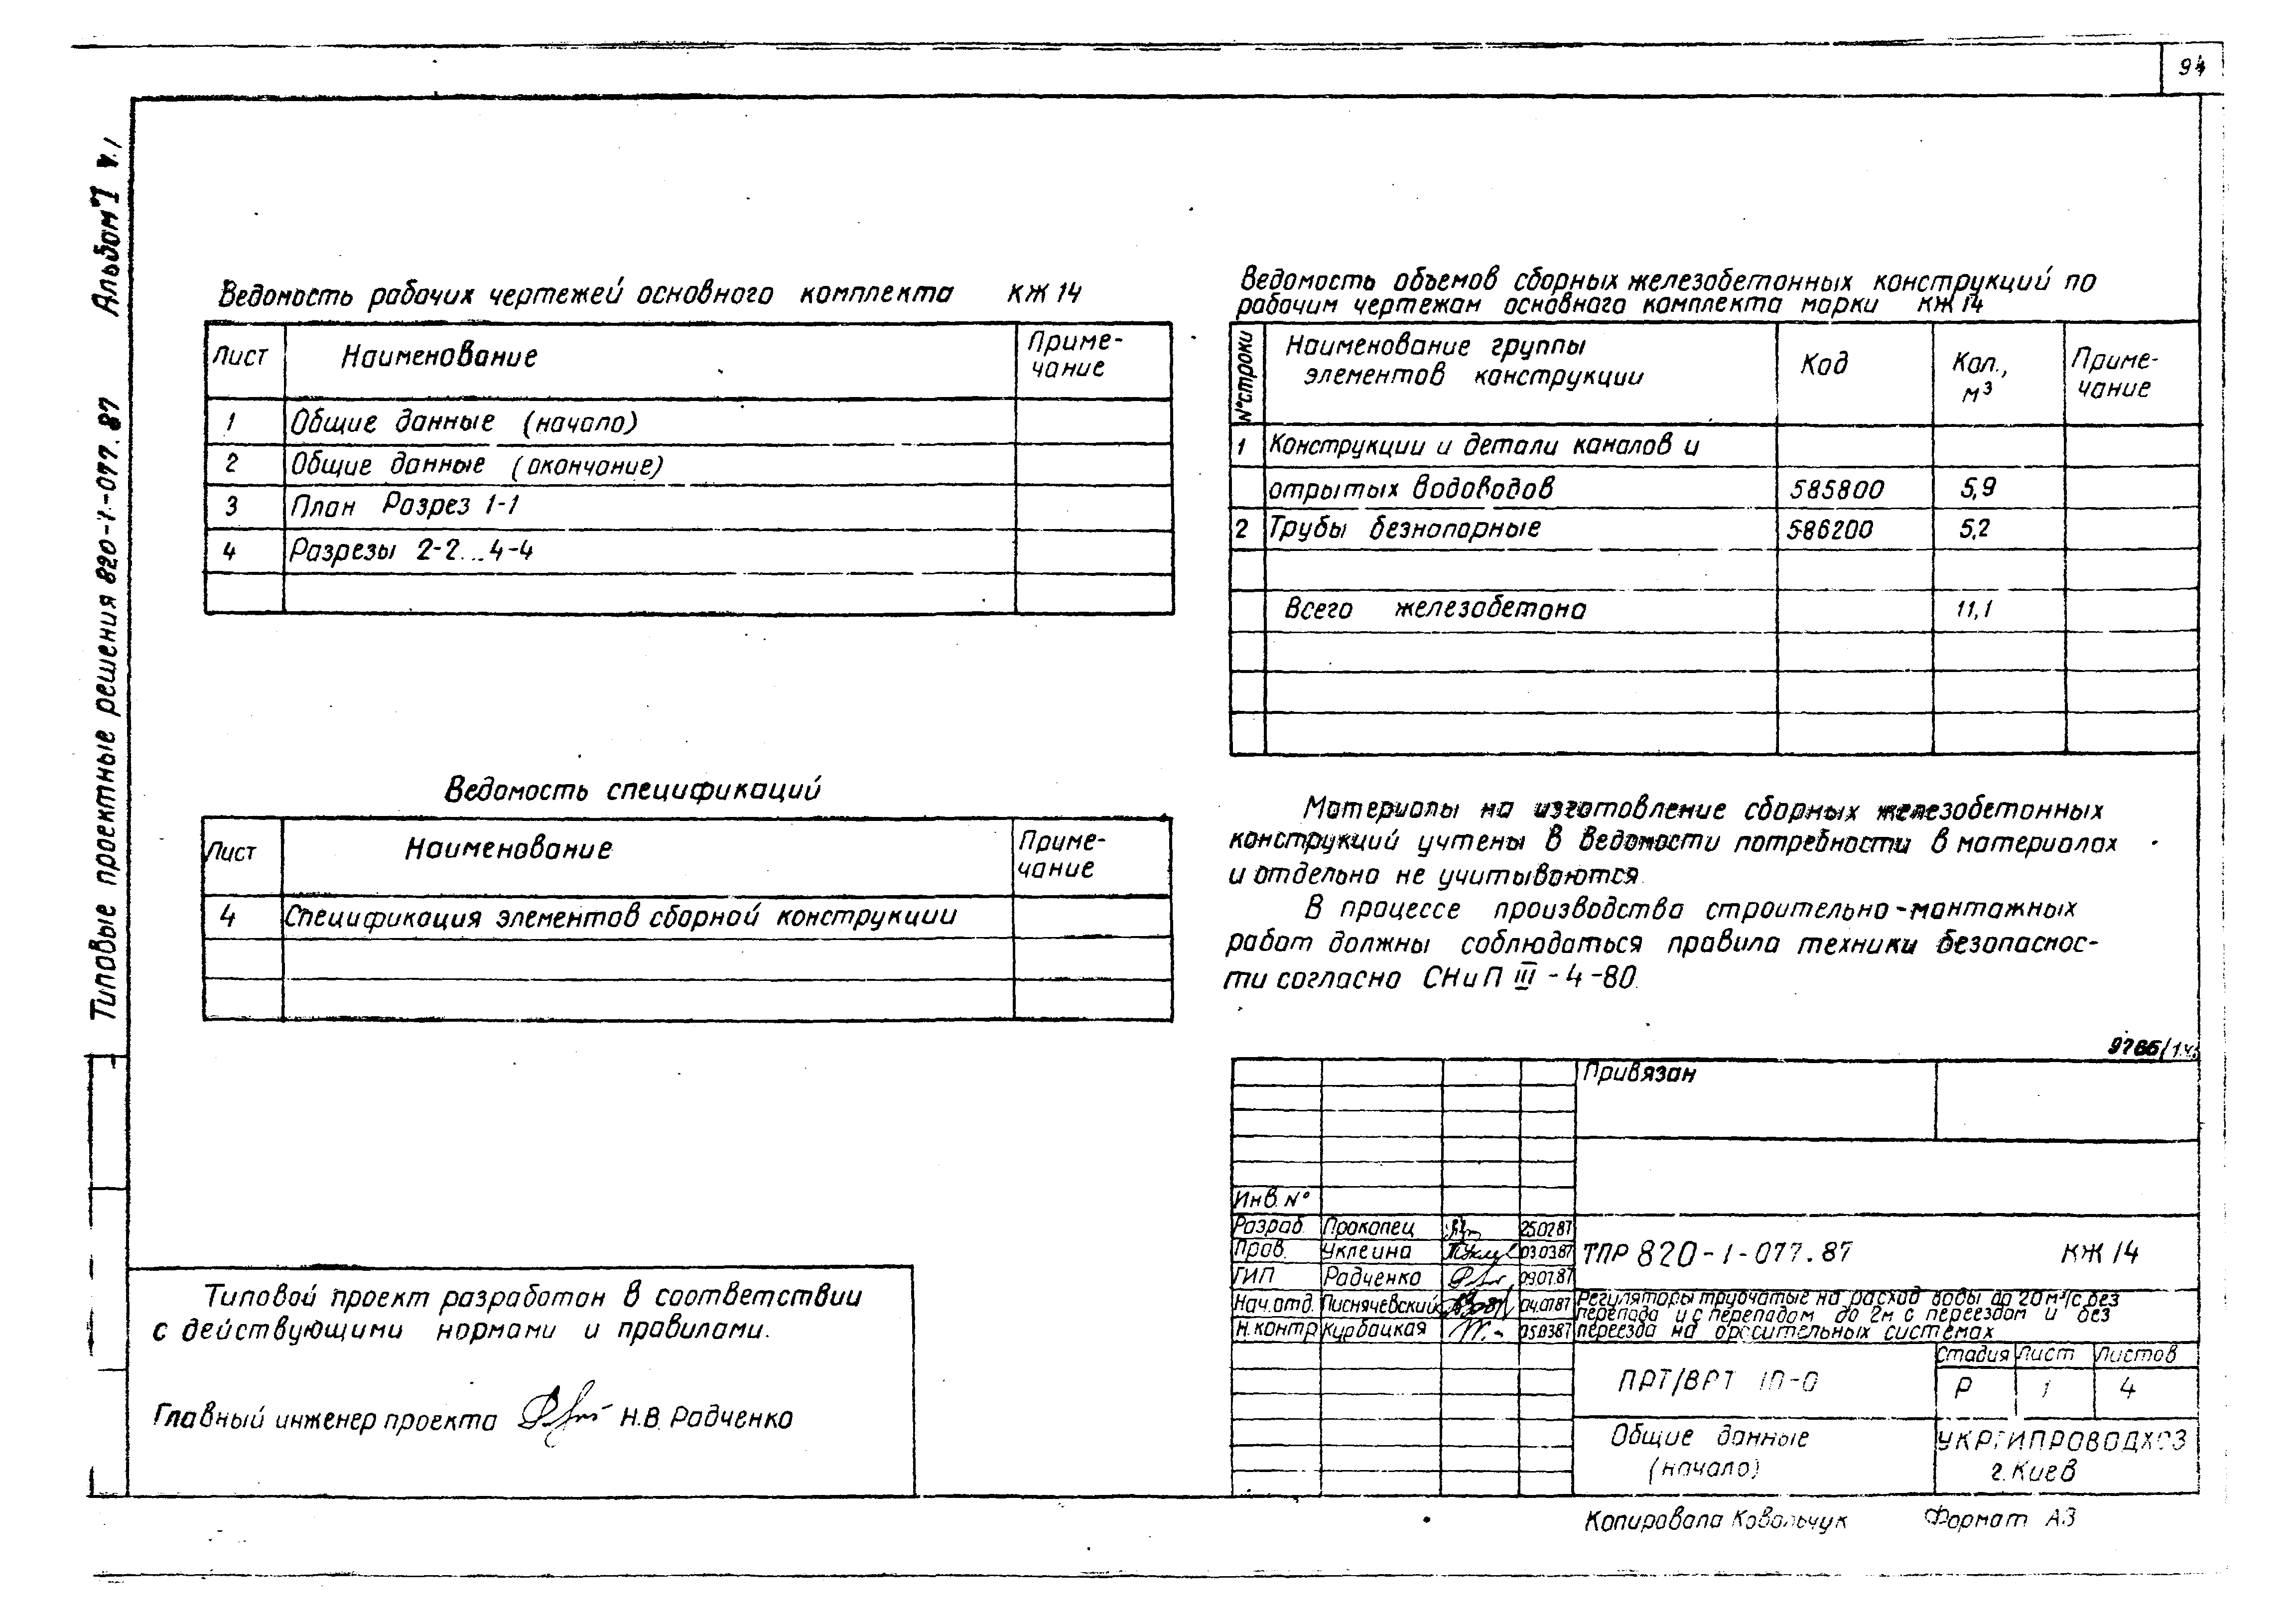 94
Альбом I ч.1
Типовые проектные решения 820-1-077.87
Ведомость рабочих чертежей основного комплекта КЖ 14
Лист Наименование Приме-
чание
1 Общие данные (начало)
2 Общие данные (окончание)
3 План Разрез 1-1
4 Разрезы 2-2...4-4
Ведомость спецификаций
Лист Наименование Приме-
чание
4 Спецификация элементов сборной конструкции
Типовой проект разработан в соответствии
с действующими нормами и правилами.
Главный инженер проекта Н.В. Радченко
Ведомость объемов сборных железобетонных конструкций по
рабочим чертежам основного комплекта марки КЖ 14
N° строки Наименование группы
элементов конструкции Код Кол.,
м³ Приме-
чание
1 Конструкции и детали каналов и
отрытых водоводов 585800 5,9
2 Трубы безнапорные 586200 5,2
Всего железобетона 11,1
Материалы на изготовление сборных железобетонных
конструкций учтены в Ведомости потребности в материалах
и отдельно не учитываются.
В процессе производства строительно-монтажных
работ должны соблюдаться правила техники безопаснос-
ти согласно СНиП III-4-80.
9766/1ч.
Привязан
Инв. N°
Разраб. Прокопец 25.02.87
Пров. Уклеина 03.03.87
ГИП Радченко 09.07.87
Нач.отд. Писнячевский 04.07.87
Н.контр Курбацкая 05.03.87
ТПР 820-1-077.87 КЖ 14
Регуляторы трубчатые на расход воды до 20м³/с без
перепада и с перепадом до 2м с переездом и без
переезда на оросительных системах
ПРТ/ВРТ 10-0
Стадия Лист Листов
Р 1 4
Общие данные
(начало)
УКРГИПРОВОДХОЗ
г. Киев
Копировала Ковальчук Формат А3